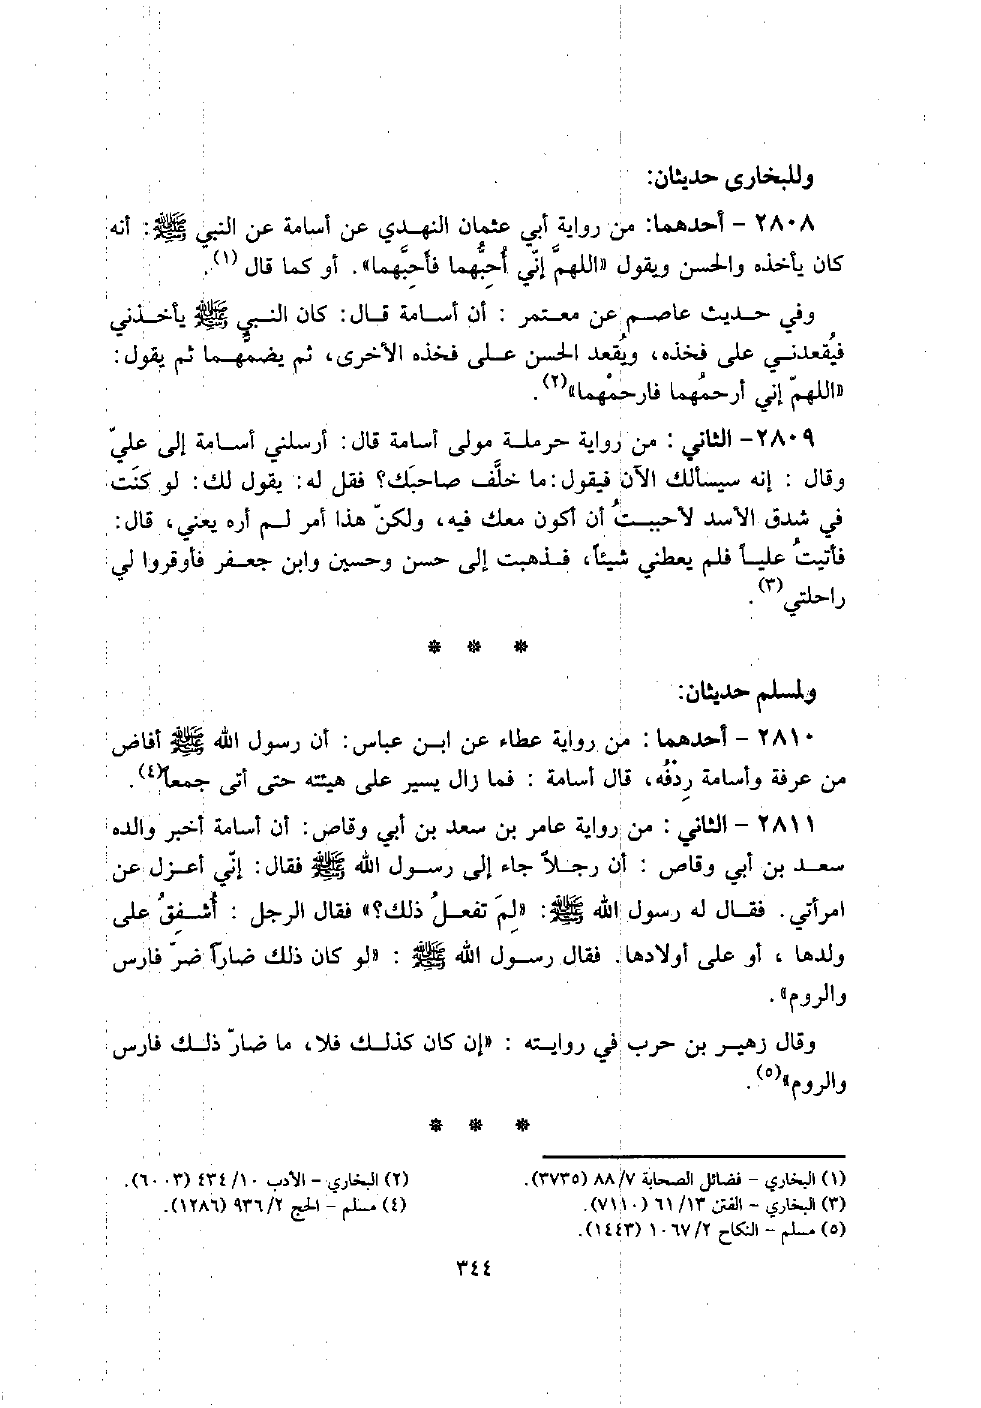 وللبخارى حديثان:
٢٨٠٨ - أحدهما: من رواية أبي عثمان النهدي عن أسامة عن النبي ﷺ: أنه
كان يأخذه والحسن ويقول «اللهمَّ إنّي أُحِبُّهما فأَحِبَّهما». أو كما قال (١).
وفي حديث عاصم عن معتمر : أن أسامة قال: كان النبي ﷺ يأخذني
فيُقعدني على فخذه، ويُقعد الحسن على فخذه الأخرى، ثم يضمُّهما ثم يقول:
«اللهمّ إني أرحمُهما فارحمْهما»(٢).
٢٨٠٩- الثاني : من رواية حرملة مولى أسامة قال: أرسلني أسامة إلى عليّ
وقال : إنه سيسألك الآن فيقول:ما خلَّف صاحبَك؟ فقل له: يقول لك: لو كنَت
في شدق الأسد لأحببتُ أن أكون معك فيه، ولكنّ هذا أمر لم أره يعني، قال:
فأتيتُ علياً فلم يعطني شيئاً، فذهبت إلى حسن وحسين وابن جعفر فأوقروا لي
راحلتي(٣).
* * *
ولمسلم حديثان:
٢٨١٠ - أحدهما : من رواية عطاء عن ابن عباس: أن رسول الله ﷺ أفاض
من عرفة وأسامة رِدْفُه، قال أسامة : فما زال يسير على هيئته حتى أتى جمعاً(٤).
٢٨١١ - الثاني : من رواية عامر بن سعد بن أبي وقاص: أن أسامة أخبر والده
سعد بن أبي وقاص : أن رجلاً جاء إلى رسول الله ﷺ فقال: إنّي أعزل عن
امرأتي. فقال له رسول الله ﷺ: «لِمَ تفعلُ ذلك؟» فقال الرجل : أُشفِقُ على
ولدها ، أو على أولادها. فقال رسول الله ﷺ : «لو كان ذلك ضاراً ضرّ فارس
والروم».
وقال زهير بن حرب في روايته : «إن كان كذلك فلا، ما ضارّ ذلك فارس
والروم»(٥).
* * *
(١) البخاري - فضائل الصحابة ٧/ ٨٨ (٣٧٣٥). (٢) البخاري - الأدب ١٠/ ٤٣٤ (٦٠٠٣).
(٣) البخاري - الفتن ١٣/ ٦١ (٧١١٠). (٤) مسلم - الحج ٢/ ٩٣٦ (١٢٨٦).
(٥) مسلم - النكاح ٢/ ١٠٦٧ (١٤٤٣).
٣٤٤